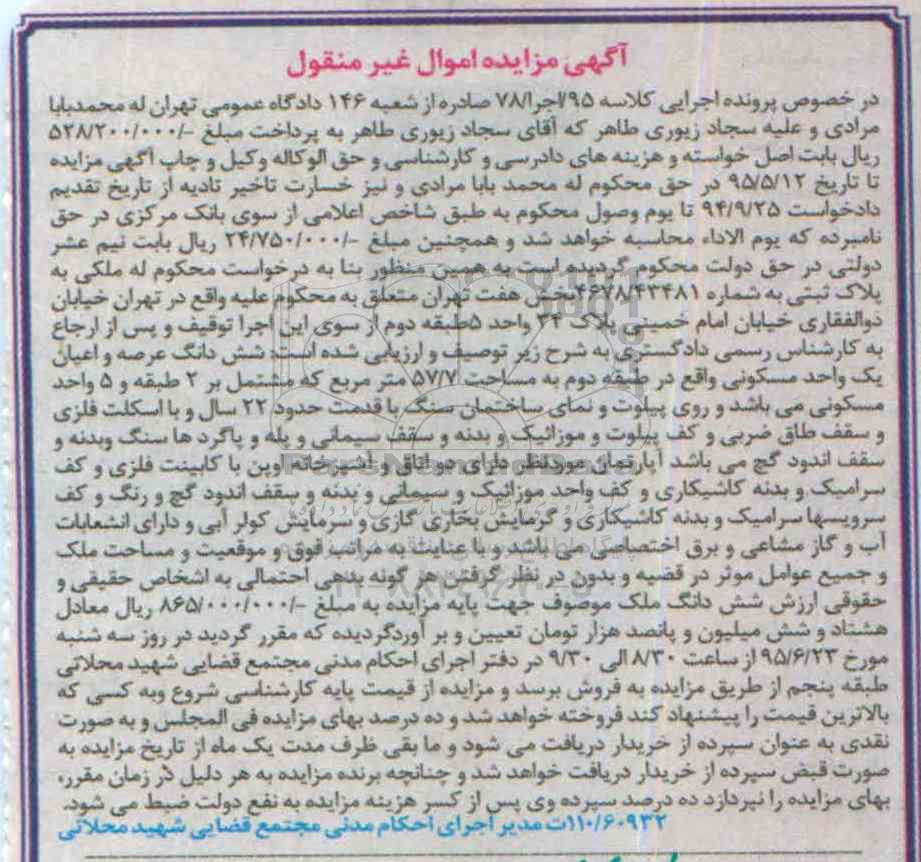 آگهی مزایده اموال غیر منقول
در خصوص پرونده اجرایی کلاسه ۷۸/اجرا/۹۵ صادره از شعبه ۱۴۶ دادگاه عمومی تهران له محمدبابا
مرادی و علیه سجاد زیوری طاهر که آقای سجاد زیوری طاهر به پرداخت مبلغ -/۵۲۸/۲۰۰/۰۰۰
ریال بابت اصل خواسته و هزینه های دادرسی و کارشناسی و حق الوکاله وکیل و چاپ آگهی مزایده
تا تاریخ ۹۵/۵/۱۲ در حق محکوم له محمد بابا مرادی و نیز خسارت تاخیر تادیه از تاریخ تقدیم
دادخواست ۹۴/۹/۲۵ تا یوم وصول محکوم به طبق شاخص اعلامی از سوی بانک مرکزی در حق
نامبرده که یوم الاداء محاسبه خواهد شد و همچنین مبلغ -/۲۴/۷۵۰/۰۰۰ ریال بابت نیم عشر
دولتی در حق دولت محکوم گردیده است به همین منظور بنا به درخواست محکوم له ملکی به
پلاک ثبتی به شماره ۴۶۷۸/۴۳۴۸۱بخش هفت تهران متعلق به محکوم علیه واقع در تهران خیابان
ذوالفقاری خیابان امام خمینی پلاک ۳۴ واحد ۵طبقه دوم از سوی این اجرا توقیف و پس از ارجاع
به کارشناس رسمی دادگستری به شرح زیر توصیف و ارزیابی شده است: شش دانگ عرصه و اعیان
یک واحد مسکونی واقع در طبقه دوم به مساحت ۵۷/۷ متر مربع که مشتمل بر ۲ طبقه و ۵ واحد
مسکونی می باشد و روی پیلوت و نمای ساختمان سنگ با قدمت حدود ۲۲ سال و با اسکلت فلزی
و سقف طاق ضربی و کف پیلوت و موزائیک و بدنه و سقف سیمانی و پله و پاگرد ها سنگ وبدنه و
سقف اندود گچ می باشد آپارتمان موردنظر دارای دو اتاق و آشپزخانه اوپن با کابینت فلزی و کف
سرامیک و بدنه کاشیکاری و کف واحد موزائیک و سیمانی و بدنه و سقف اندود گچ و رنگ و کف
سرویسها سرامیک و بدنه کاشیکاری و گرمایش بخاری گازی و سرمایش کولر آبی و دارای انشعابات
آب و گاز مشاعی و برق اختصاصی می باشد و با عنایت به مراتب فوق و موقعیت و مساحت ملک
و جمیع عوامل موثر در قضیه و بدون در نظر گرفتن هر گونه بدهی احتمالی به اشخاص حقیقی و
حقوقی ارزش شش دانگ ملک موصوف جهت پایه مزایده به مبلغ -/۸۶۵/۰۰۰/۰۰۰ ریال معادل
هشتاد و شش میلیون و پانصد هزار تومان تعیین و بر آوردگردیده که مقرر گردید در روز سه شنبه
مورخ ۹۵/۶/۲۳ از ساعت ۸/۳۰ الی ۹/۳۰ در دفتر اجرای احکام مدنی مجتمع قضایی شهید محلاتی
طبقه پنجم از طریق مزایده به فروش برسد و مزایده از قیمت پایه کارشناسی شروع وبه کسی که
بالاترین قیمت را پیشنهاد کند فروخته خواهد شد و ده درصد بهای مزایده فی المجلس و به صورت
نقدی به عنوان سپرده از خریدار دریافت می شود و ما بقی ظرف مدت یک ماه از تاریخ مزایده به
صورت قبض سپرده از خریدار دریافت خواهد شد و چنانچه برنده مزایده به هر دلیل در زمان مقرر،
بهای مزایده را نپردازد ده درصد سپرده وی پس از کسر هزینه مزایده به نفع دولت ضبط می شود.
۱۱۰/۶۰۹۳۲ت مدیر اجرای احکام مدنی مجتمع قضایی شهید محلاتی